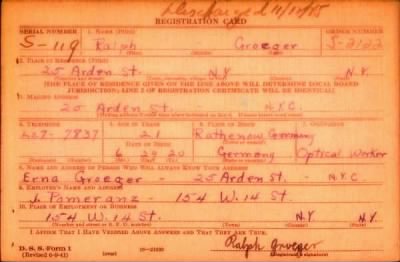 Discharged 11/11/45
REGISTRATION CARD
SERIAL NUMBER 1. NAME (Print) ORDER NUMBER
S-119 Ralph Groeger S-2122
2. PLACE OF RESIDENCE (Print)
25 Arden St. N.Y. N.Y.
[THE PLACE OF RESIDENCE GIVEN ON THE LINE ABOVE WILL DETERMINE LOCAL BOARD
JURISDICTION; LINE 2 OF REGISTRATION CERTIFICATE WILL BE IDENTICAL]
3. MAILING ADDRESS
25 Arden St. - N.Y.C.
4. TELEPHONE 5. AGE IN YEARS 6. PLACE OF BIRTH
7837 21 Rathenow Germany
DATE OF BIRTH
6 20 Germany Optical Worker
8. NAME AND ADDRESS OF PERSON WHO WILL ALWAYS KNOW YOUR ADDRESS
Erna Groeger - 25 Arden St. - N.Y.C.
9. EMPLOYER'S NAME AND ADDRESS
J. Pomeranz - 154 W. 14 St.
10. PLACE OF EMPLOYMENT OR BUSINESS
154 W. 14 St. N.Y. N.Y.
I AFFIRM THAT I HAVE VERIFIED ABOVE ANSWERS AND THAT THEY ARE TRUE.
D. S. S. Form 1
Ralph Groeger